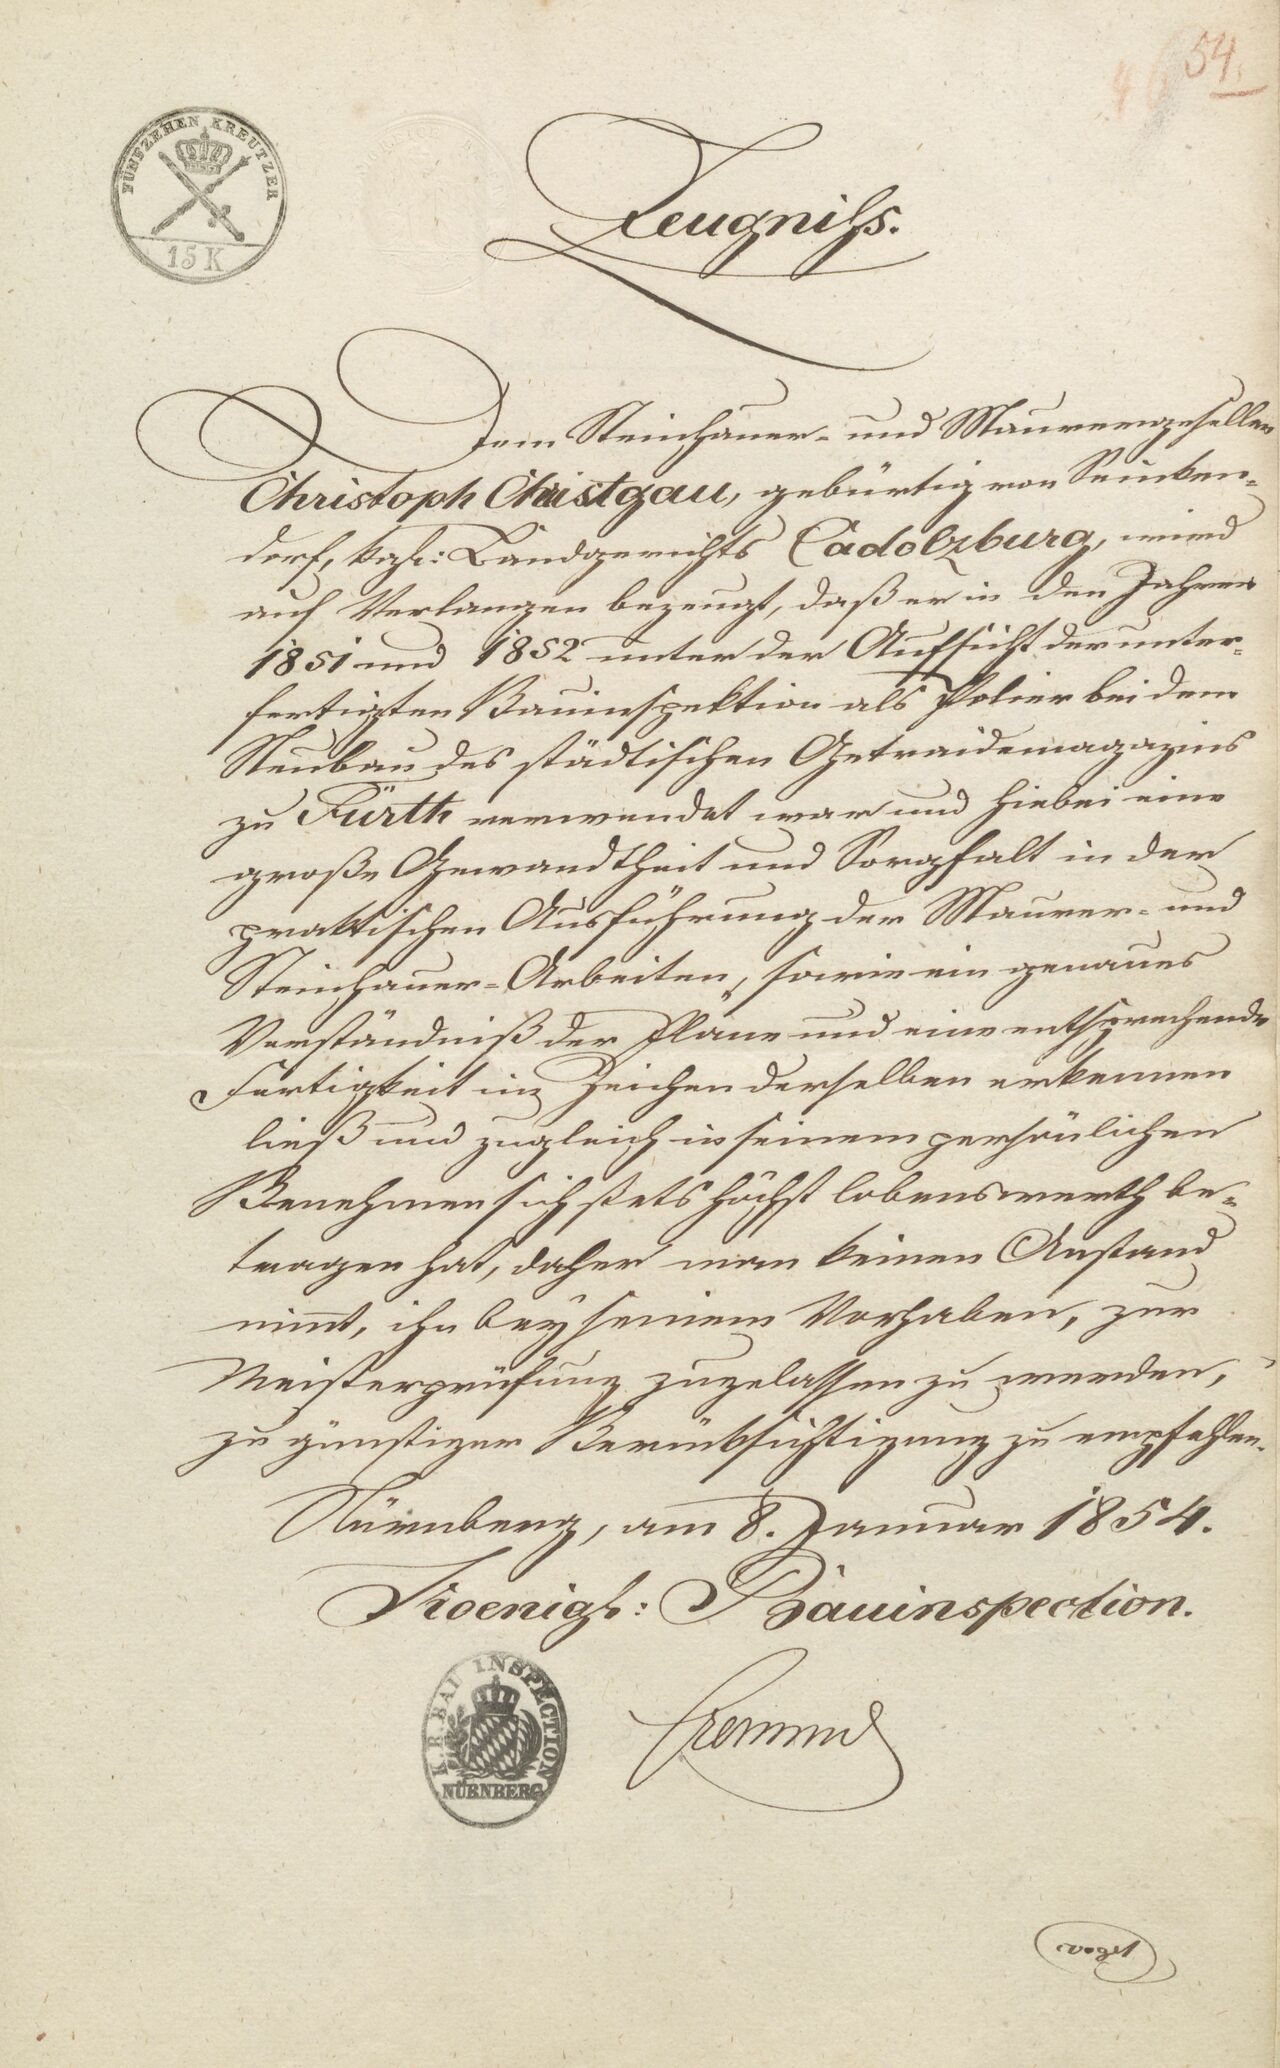 54.
FÜNFZEHEN KREUTZER
15 K
Zeugniſs.
Dem Steinhauer- und Maurergesellen
Christoph Christgau, gebürtig von Seuken-
dorf, kgl: Landgerichts Cadolzburg, wird
auf Verlangen bezeugt, daß er in den Jahren
1851 und 1852 unter der Aufsicht der unter-
fertigten Bauinspektion als Polier bei dem
Neubau des städtischen Getraidemagazins
zu Fürth verwendet war und hiebei eine
große Gewandtheit und Sorgfalt in der
praktischen Ausführung der Maurer- und
Steinhauer-Arbeiten, sowie ein genaues
Verständniß der Pläne und eine entsprechende
Fertigkeit im Zeichen derselben erkennen
ließ und zugleich in seinem persönlichen
Benehmen sich stets höchst lobenswerth be-
tragen hat, daher man keinen Anstand
nimt, ihn bey seinem Vorhaben, zur
Meisterprüfung zugelassen zu werden,
zu günstiger Berücksichtigung zu empfehlen.
Nürnberg, am 8. Januar 1854.
Koenigl: Bauinspection.
K. B. BAU INSPECTION
NÜRNBERG